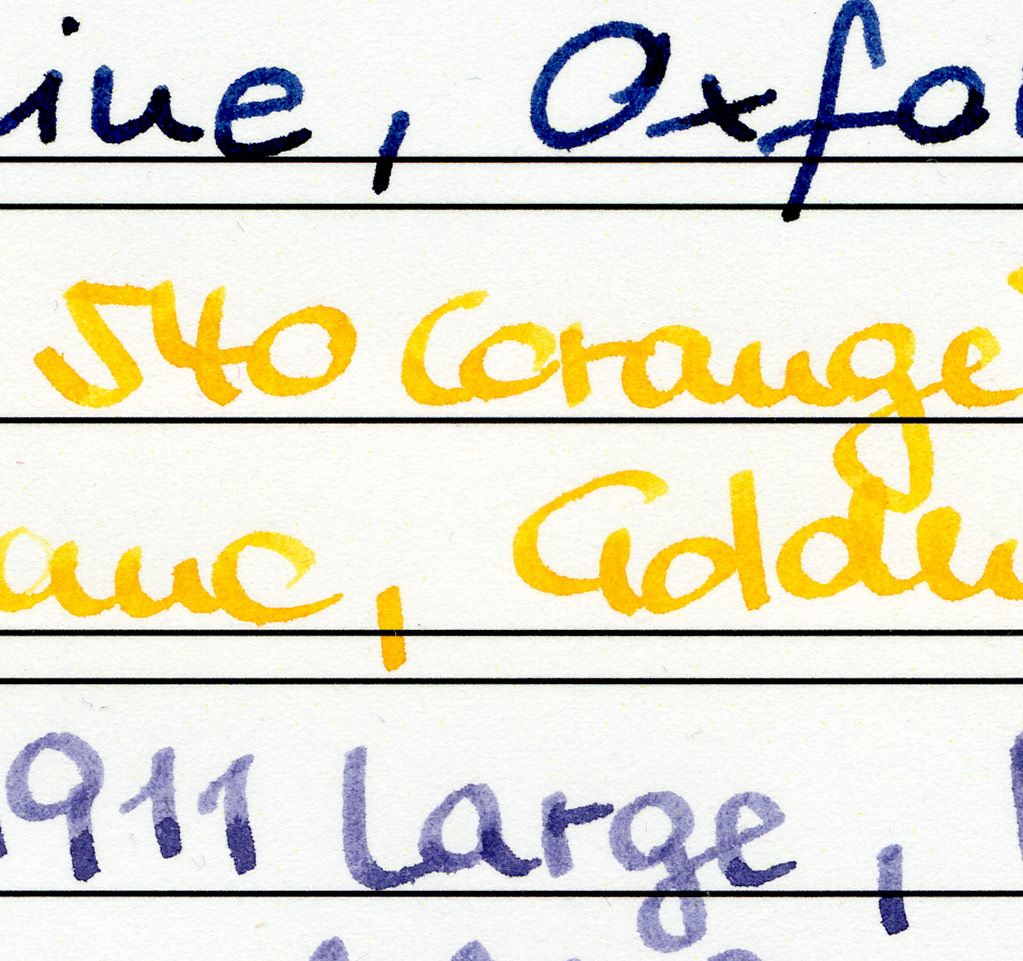 ine, Oxfo
540 (orange
anc, Golden
1911 large,